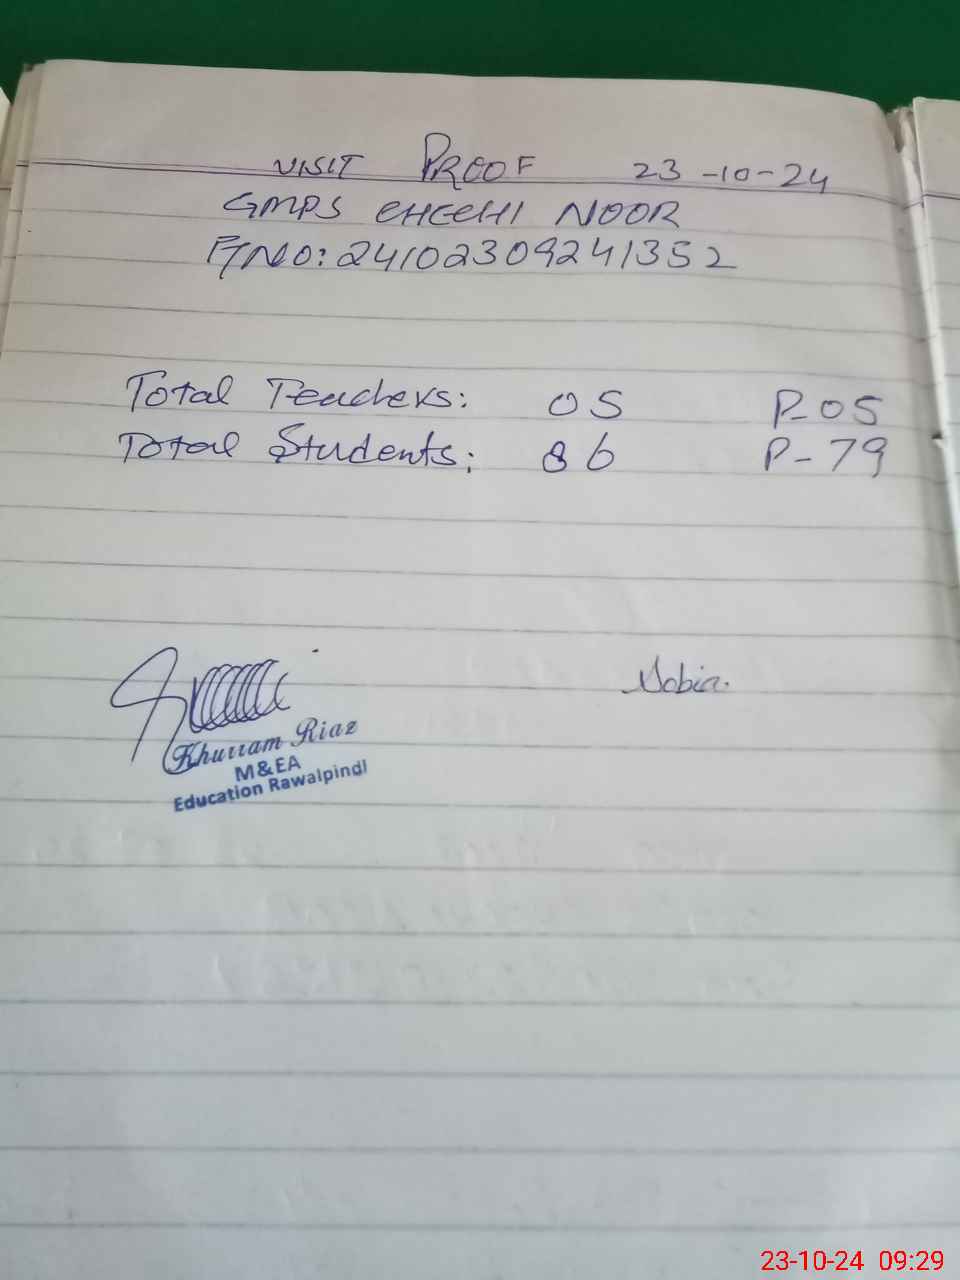 VISIT PROOF 23-10-24
GMPS CHECHI NOOR
P/NO: 24102309241352
Total Teachers: 05 P-05
Total Students: 86 P-79
Nobia.
Khurram Riaz
M&EA
Education Rawalpindi
23-10-24 09:29